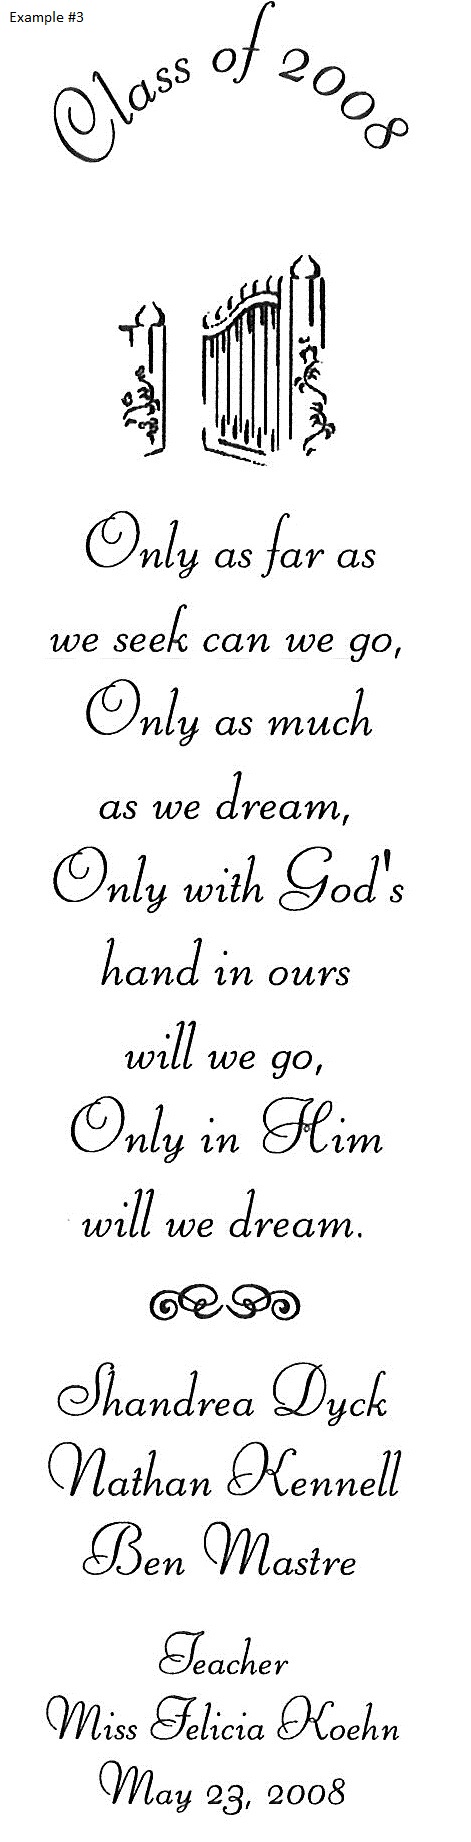 Example #3
Class of 2008
Only as far as
we seek can we go,
Only as much
as we dream,
Only with God's
hand in ours
will we go,
Only in Him
will we dream.
Shandrea Dyck
Nathan Kennell
Ben Mastre
Teacher
Miss Felicia Koehn
May 23, 2008